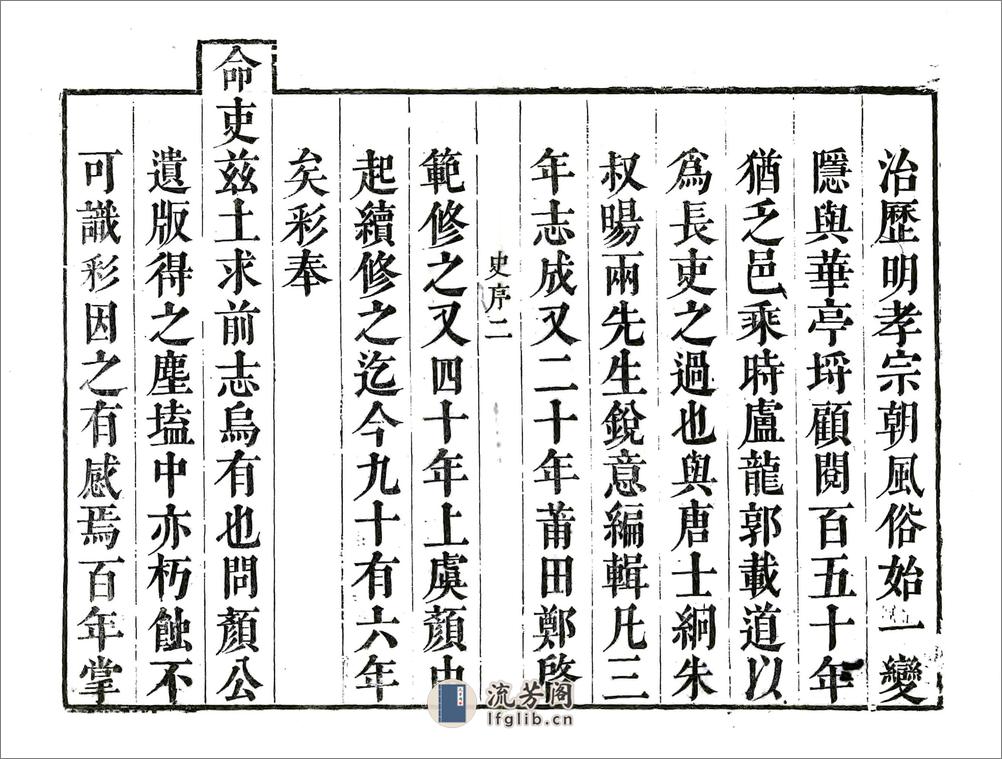 治歷明孝宗朝風俗始一變
隱與華亭埒顧閱百五十年
猶乏邑乘時盧龍郭載道以
爲長吏之過也與唐士絅朱
叔暘兩先生銳意編輯凡三
年志成又二十年莆田鄭啓
史序二
範修之又四十年上虞顏由
起續修之迄今九十有六年
矣彩奉
命吏兹土求前志烏有也問顏公
遺版得之塵壒中亦朽蝕不
可識彩因之有感焉百年掌
流芳阁
lfglib.cn